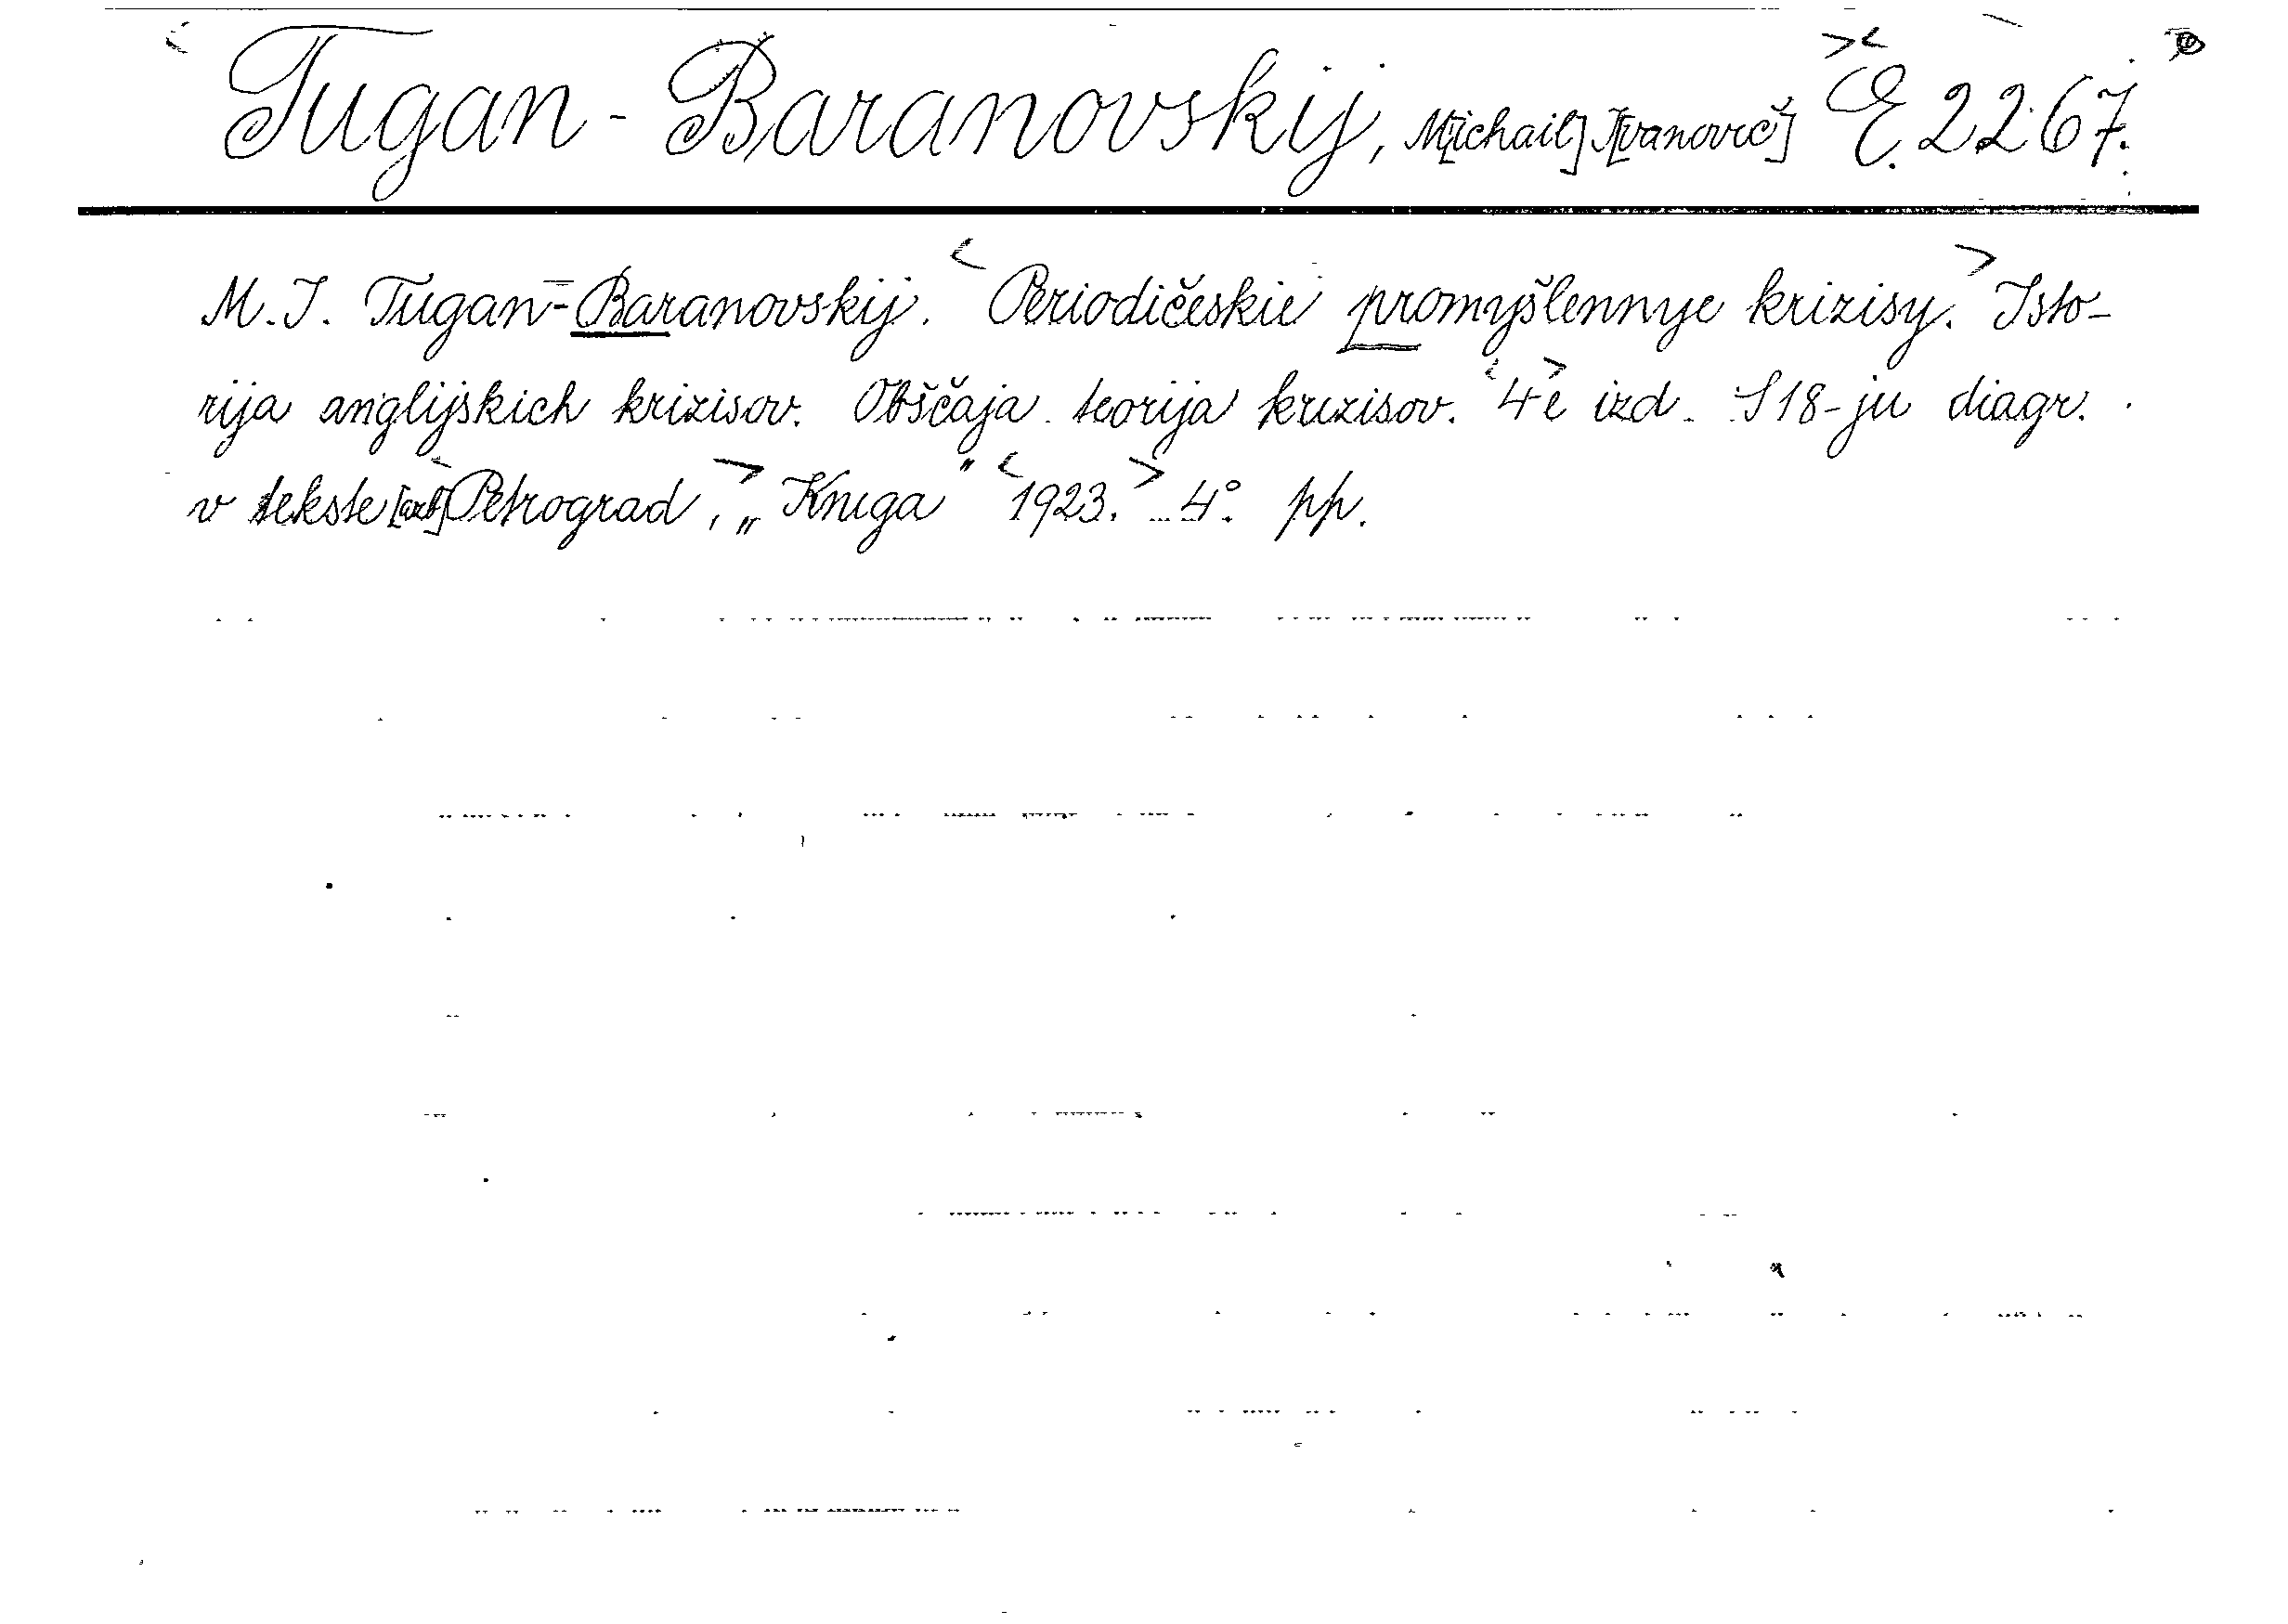 Tugan-Baranovskij, M[ichail] I[vanovič] E. 2267.
M. I. Tugan-Baranovskij. Periodičeskie promyšlennye krizisy. Isto-
rija anglijskich krizisov. Obščaja teorija krizisov. 4-e izd. S 18-ju diagr.
v tekste Petrograd, „Kniga" 1923. 4° pp.